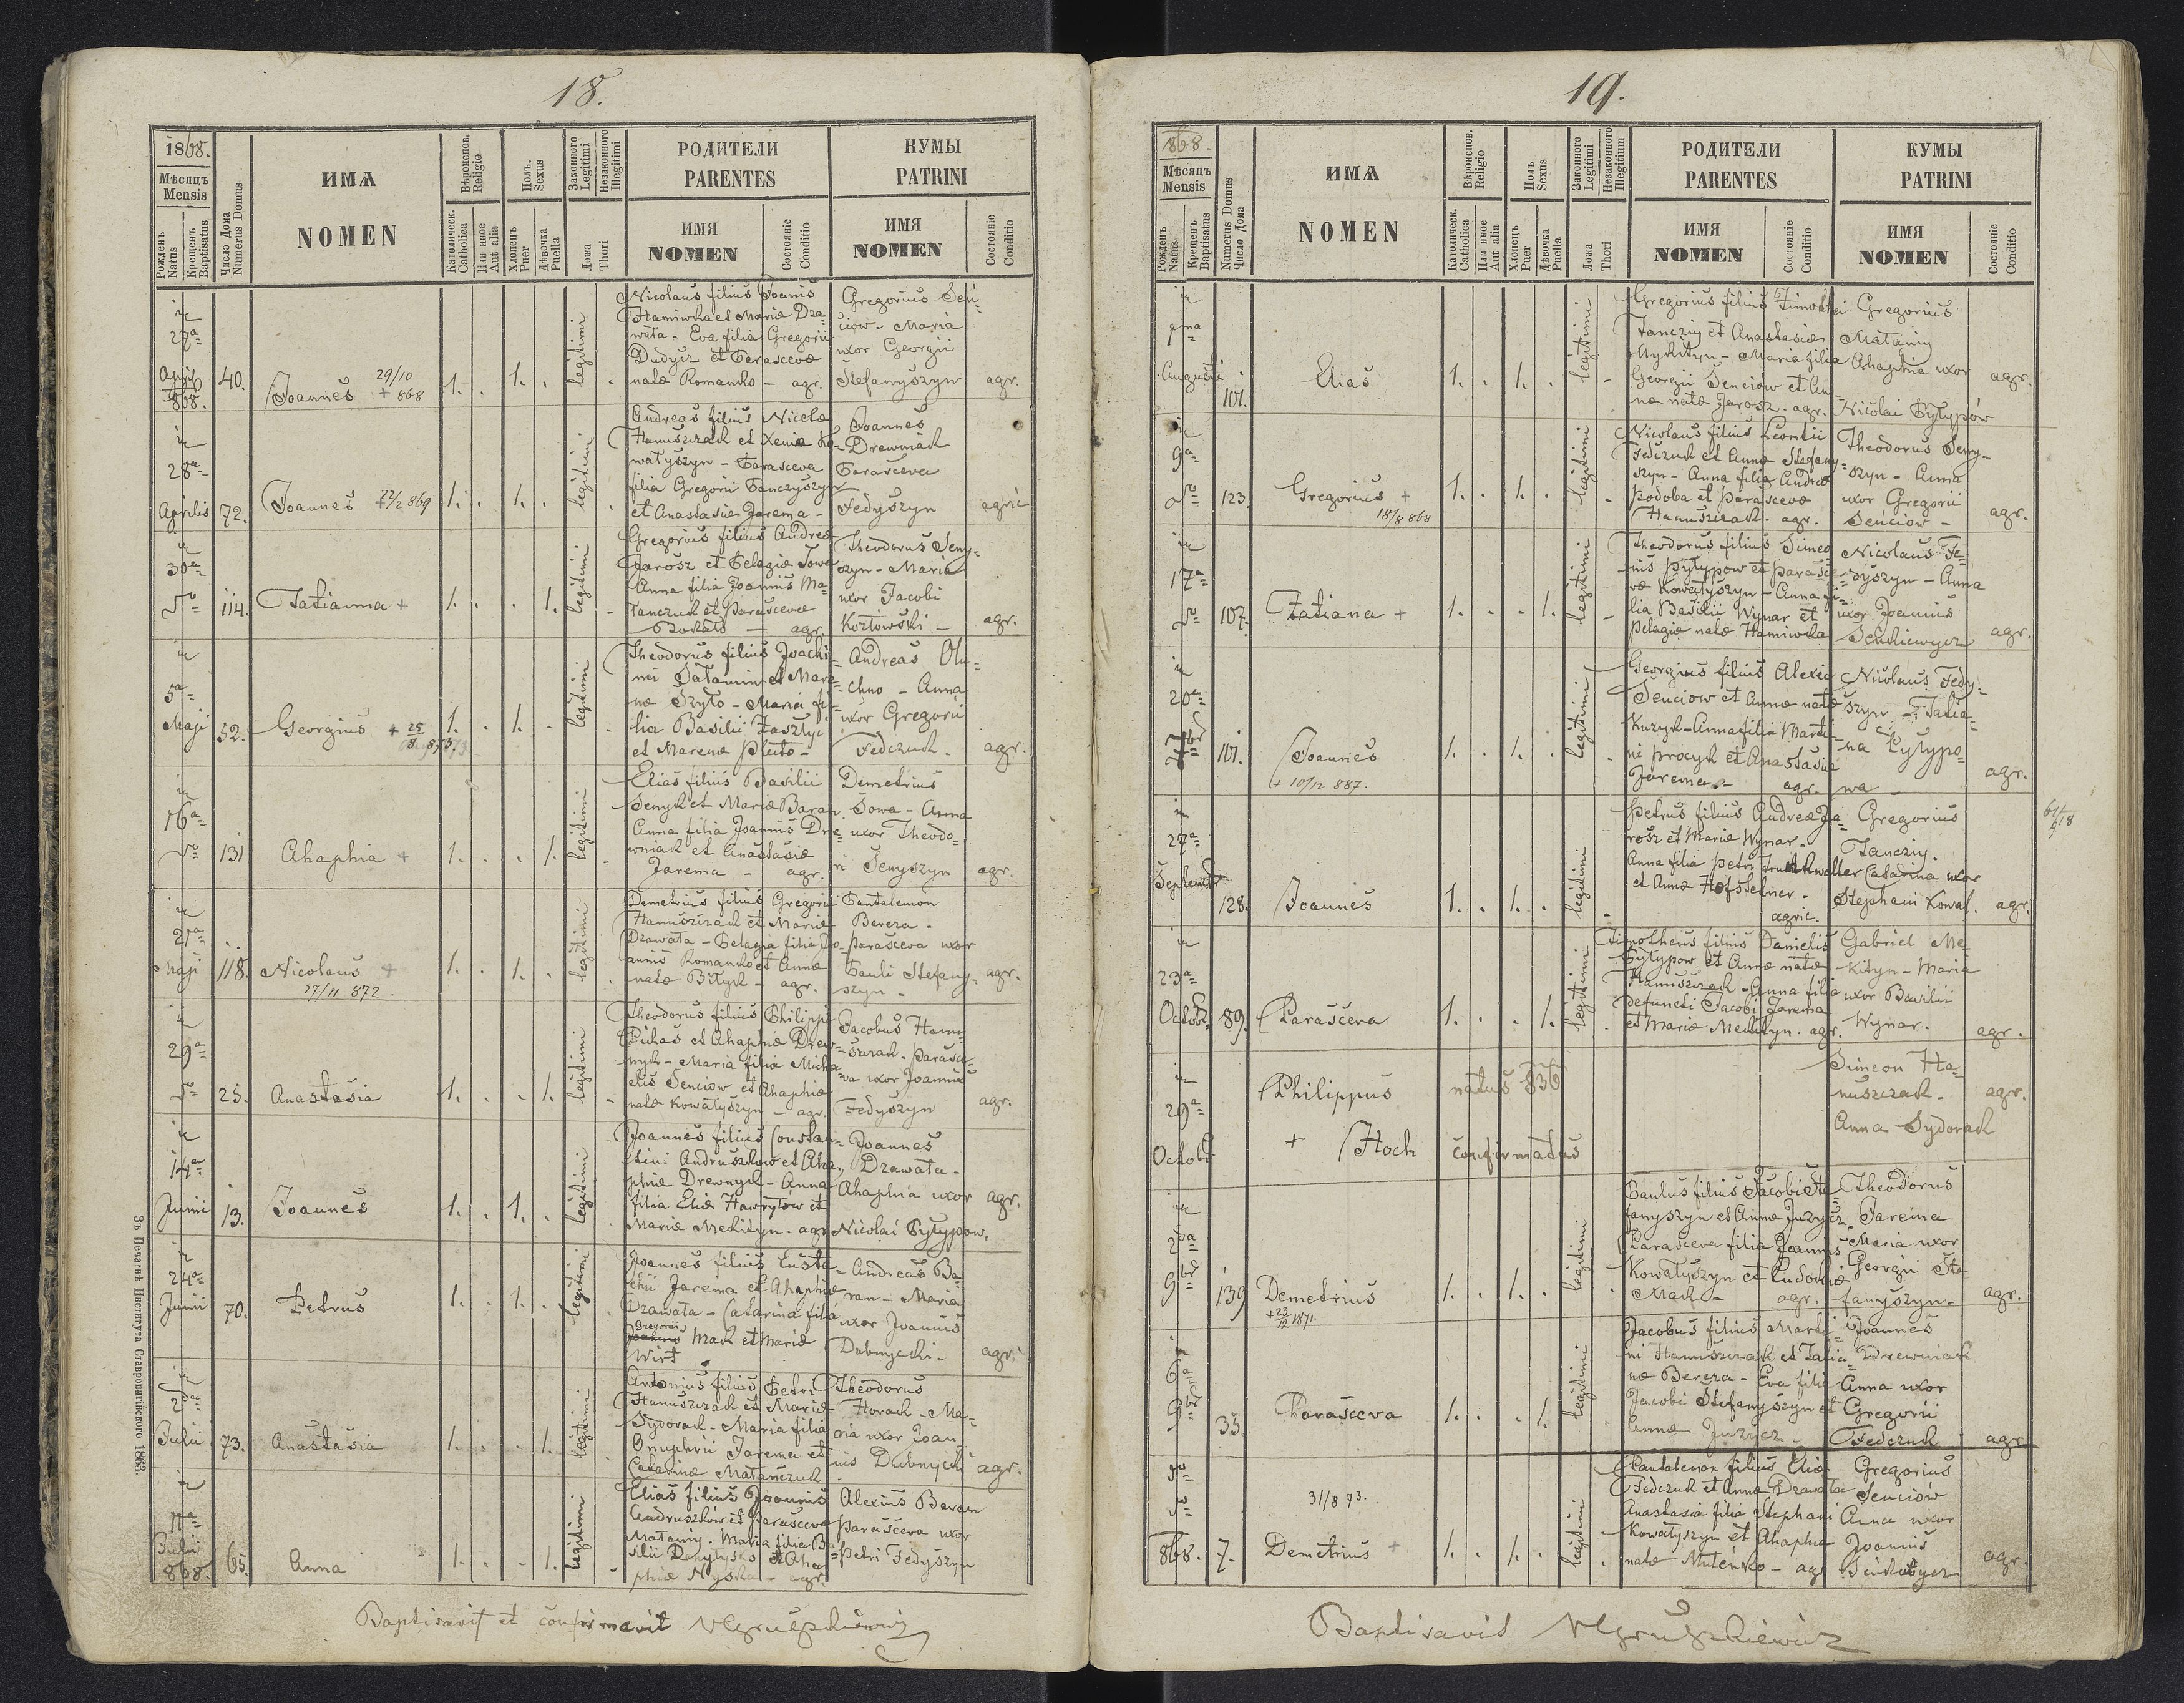 18.
1868.
Мѣсяцъ
Mensis
Рожденъ
Natus
Крещенъ
Baptisatus
Число Дома
Numerus Domus
ИМѦ
NOMEN
Вѣроиспов.
Religio
Католическ.
Catholica
Или иное
Aut alia
Полъ.
Sexus
Хлопецъ
Puer
Дѣвочка
Puella
Законного
Legitimi
Незаконного
Illegitimi
Ложа
Thori
РОДИТЕЛИ
PARENTES
ИМЯ
NOMEN
Состояніе
Conditio
КУМЫ
PATRINI
ИМЯ
NOMEN
Состояніе
Conditio
27a
April
868.
40.
Joannes
29/10
+ 868
1. . 1. .
legitimi
Nicolaus filius Joannis
Hamiwka et Mariæ Dza-
wała - Eva filia Gregorii
Dudycz et Parascevæ
natæ Romanko - agr.
Gregorius Sen-
ciow - Maria
uxor Georgii
Stefanyszyn agr.
28a
Aprilis
72.
Joannes + 22/2 869
1. . 1. .
legitimi
Andreas filius Nicolæ
Hanuszczak et Xenia Ko-
wałyszyn - Parasceva
filia Gregorii Panczyszyn
et Anastasiæ Jarema -
Joannes
Drewniak
Parasceva
Fedyszyn agric
30a
114.
Tatianna +
1. . . 1.
legitimi
Gregorius filius Andreæ
Jarosz et Pelagiæ Sowa
Anna filia Joannis Ma-
tanczuk et Parascevæ
agr.
Theodorus Seny-
szyn - Maria
uxor Jacobi
Kozłowski - agr.
5a
Maji
52.
Georgius + 25/8 873
1. . 1. .
legitimi
Theodorus filius Joachi-
mi Salamin et Mari-
næ Szyto - Maria fi-
lia Basilii Zasztyi
et Marenæ Pluto -
Andreas Olu-
chno - Anna
uxor Gregorii
Fedczuk. agr.
16a
131
Ahaphia +
1. . . 1.
legitimi
Elias filius Basilii
Senyk et Mariæ Baran
Anna filia Joannis Dre-
wniak et Anastasiæ
Jarema - agr.
Demetrius
Sowa - Anna
uxor Theodo-
ri Senyszyn agr.
21a
Maji
118.
Nicolaus +
27/11 872.
1. . 1. .
legitimi
Demetrius filius Gregorii
Hanuszczak et Mariæ
Dzawała - Pelagia filia Jo-
annis Romanko et Annæ
natæ Biłyk - agr.
Pantalemon
Bereza -
Parasceva uxor
Pauli Stefany-
szyn - agr.
29a
25.
Anastasia
1. . . 1.
legitimi
Theodorus filius Philippi
Pichas et Ahaphiæ Drew-
nyk - Maria filia Micha-
elis Senciow et Ahaphiæ
natæ Kowałyszyn - agr.
Jacobus Hanu-
szczak. Parasce-
va uxor Joannis
Fedyszyn agr.
14a
Junii
13.
Joannes
1. . 1. .
legitimi
Joannes filius Constan-
tini Andruszkow et Aha-
phiæ Drewnyk - Anna
filia Eliæ Hawryłow et
Mariæ Mekityn - agr
Joannes
Dzawała -
Ahaphia uxor agr.
Nicolai Pyłypow.
24a
Junii
70.
Petrus
1. . 1. .
legitimi
Joannes filius Eusta-
chii Jarema et Ahaphiæ
Dzawała - Catarina filia
Gregorii
Joannis Mack et Mariæ
Wirt
Andreas Ba-
ran - Maria
uxor Joannis
Dubnycki - agr.
Julii
73.
Anastasia
1. . . 1.
legitimi
Antonius filius Petri
Hanuszczak et Mariæ
Sydorak - Maria filia
Onuphrii Jarema et
Catarinæ Matanczuk
Theodorus
Horack - Ma-
ria uxor Joan-
nis Dubnycki agr.
11a
Julii
868.
65.
Anna
1. . - 1.
legitimi
Elias filius Joannis
Andruszkow et Parascevæ
Mataniy. Maria filia Ba-
silii Danyłysko et Aha-
phiæ Nyska - agr.
Alexius Baran
Parasceva uxor
Petri Fedyszyn
Baptisavit et confirmavit
Зъ Печатнѣ Института Ставропигійского 1863.
19.
868.
Мѣсяцъ
Mensis
Рожденъ
Natus
Крещенъ
Baptisatus
Numerus Domus
Число Дома
ИМѦ
NOMEN
Вѣроиспов.
Religio
Католическ.
Catholica
Или иное
Aut alia
Полъ
Sexus
Хлопецъ
Puer
Дѣвочка
Puella
Законного
Legitimi
Незаконного
Illegitimum
Ложа
Thori
РОДИТЕЛИ
PARENTES
ИМЯ
NOMEN
Состояніе
Conditio
КУМЫ
PATRINI
ИМЯ
NOMEN
Состояніе
Conditio
Augusti
101.
Elias
1. . 1. .
legitimi
Gregorius filius Timothei
Tanczin et Anastasiæ
Mykityn - Maria filia
Georgii Senciow et An-
næ natæ Jarosz. agr.
Gregorius
Mataniy
Ahaphia uxor agr.
Nicolai Pyłypów
9a
123.
Gregorius +
18/8 868
1. . 1. .
legitimi
Nicolaus filius Leontii
Fedczuk et Annæ Stefany-
szyn - Anna filia Andreæ
Podoba et Parascevæ
Hanuszczak. agr.
Theodorus Seny-
szyn - Anna
uxor Gregorii
Senciow - agr.
17a
107.
Tatiana +
1. . - 1.
legitimi
Theodorus filius Simeo-
nis Pyłypow et Parasce-
væ Kowałyszyn - Anna fi-
lia Basilii Wynar et
Pelagiæ natæ Hamiwka
Nicolaus Fe-
dyszyn - Anna
uxor Joannis
Senkiewycz agr.
20a
7br
101.
Joannes
+ 10/12 887.
1. . 1. .
legitimi
Georgius filius Alexii
Senciow et Annæ natæ
Kuzyk - Anna filia Marti-
ni Procyk et Anastasiæ
Jarema - agr.
Nicolaus Fedy-
szyn - Tatia-
na Pyłypo-
wa agr.
27a
Septembr
128.
Joannes
1. . 1. .
legitimi
Petrus filius Andreæ Ja-
rosz et Mariæ Wynar.
Anna filia Petri
et Annæ Hofstetner -
agric.
Gregorius
Tanczin.
Catarina uxor
Stephani Kowal. agr.
23a
Octobr
89.
Parasceva
1. . . 1.
legitimi
Timotheus filius Danielis
Pyłypow et Annæ natæ
Hanuszczak - Anna filia
defuncti Jacobi Jarema
et Mariæ Mekityn. agr.
Gabriel Me-
kityn - Maria
uxor Basilii
Wynar. agr.
29a
Octobr
Philippus natus 836
+ Hoch confirmatus
Simeon Ha-
nuszczak. agr.
Anna Sydorack
2a
9br
139
Demetrius
+ 23/12 1871.
1. . 1. .
legitimi
Paulus filius Jacobi Ste-
fanyszyn et Annæ Juzycz.
Parasceva filia Joannis
Kowałyszyn et Eudoxiæ
Mack - agr.
Theodorus
Jarema
Maria uxor
Georgii Ste-
fanyszyn. agr.
6a
9br
35.
Parasceva
1. . . 1.
legitimi
Jacobus filius Marti-
ni Hanuszczak et Tatia-
næ Bereza - Eva filia
Jacobi Stefanyszyn et
Annæ Juzycz -
Joannes
Drewniak
Anna uxor
Gregorii
Fedczuk agr.
868.
7.
31/8 73.
Demetrius +
1. . 1. .
legitimi
Pantalemon filius Eliæ
Fedczuk et Annæ Dzawała
Anastasia filia Stephani
Kowałyszyn et Ahaphiæ
natæ Muteńko - agr
Gregorius
Senciów
Anna uxor
Joannis
Senkiewycz agr.
Baptisavit